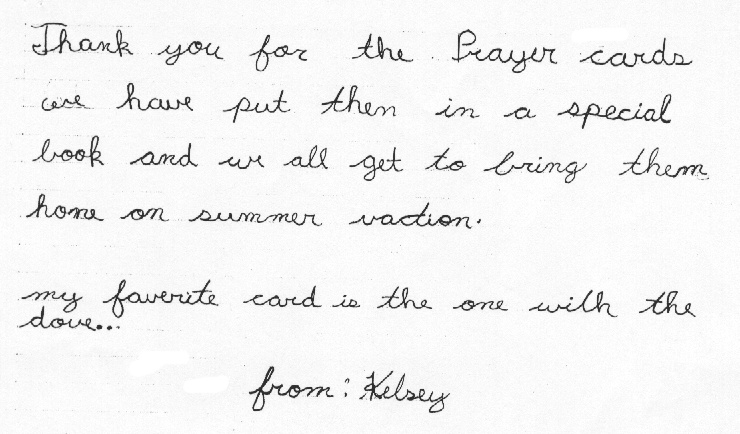 Thank you for the Prayer cards
we have put then in a special
book and we all get to bring them
home on summer vaction.
my faverite card is the one with the
dove...
from: Kelsey